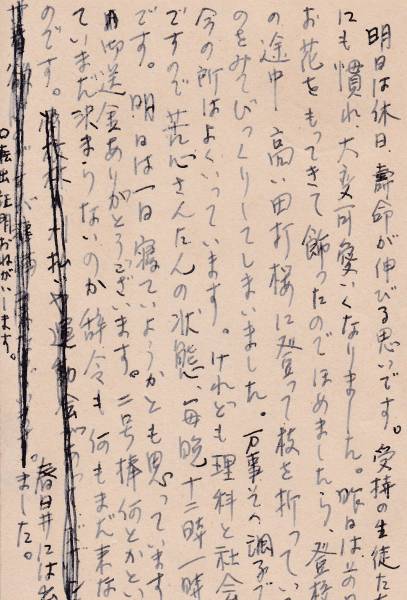 明日は休日、壽命が伸びる思いです。受持の生徒たち
にも慣れ、大変可愛いくなりました。昨日はその
お花をもってきて飾ったのでほめましたら、登校
の途中 高い田打桜に登って枝を折ってい
のをみてびっくりしてしまいました。万事その調子で
今の所はよくいっています。けれども理科と社会
ですので苦心さんたんの状態、毎晩十二時一時
です。明日は一日寝ていようかとも思っています
御送金ありがとうございます。二号俸何とかとい
ていまだ決まらないのか辞令も何もまだ来な
のです。
春日井には
ました。
○転出証明おねがいします。